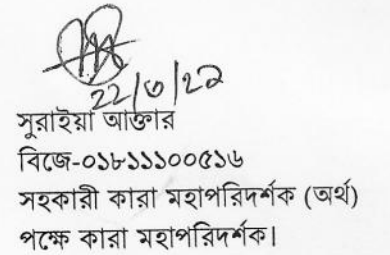 ২২/৩/২২
সুরাইয়া আক্তার
বিজে-০১৮১১১০০৫১৬
সহকারী কারা মহাপরিদর্শক (অর্থ)
পক্ষে কারা মহাপরিদর্শক।